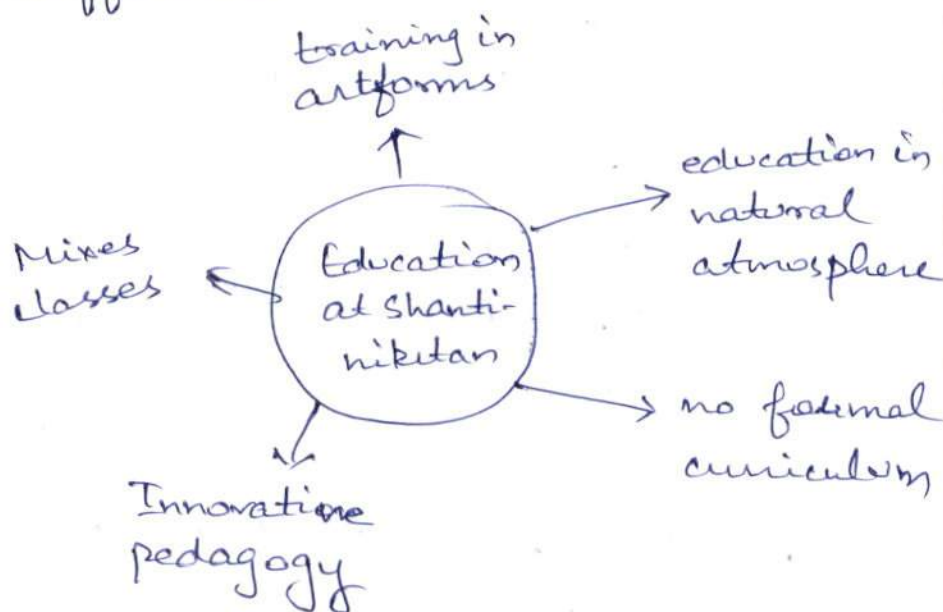 training in
artforms
education in
natural
atmosphere
Mixes
classes
Education
at Shanti-
niketan
no formal
curriculum
Innovative
pedagogy